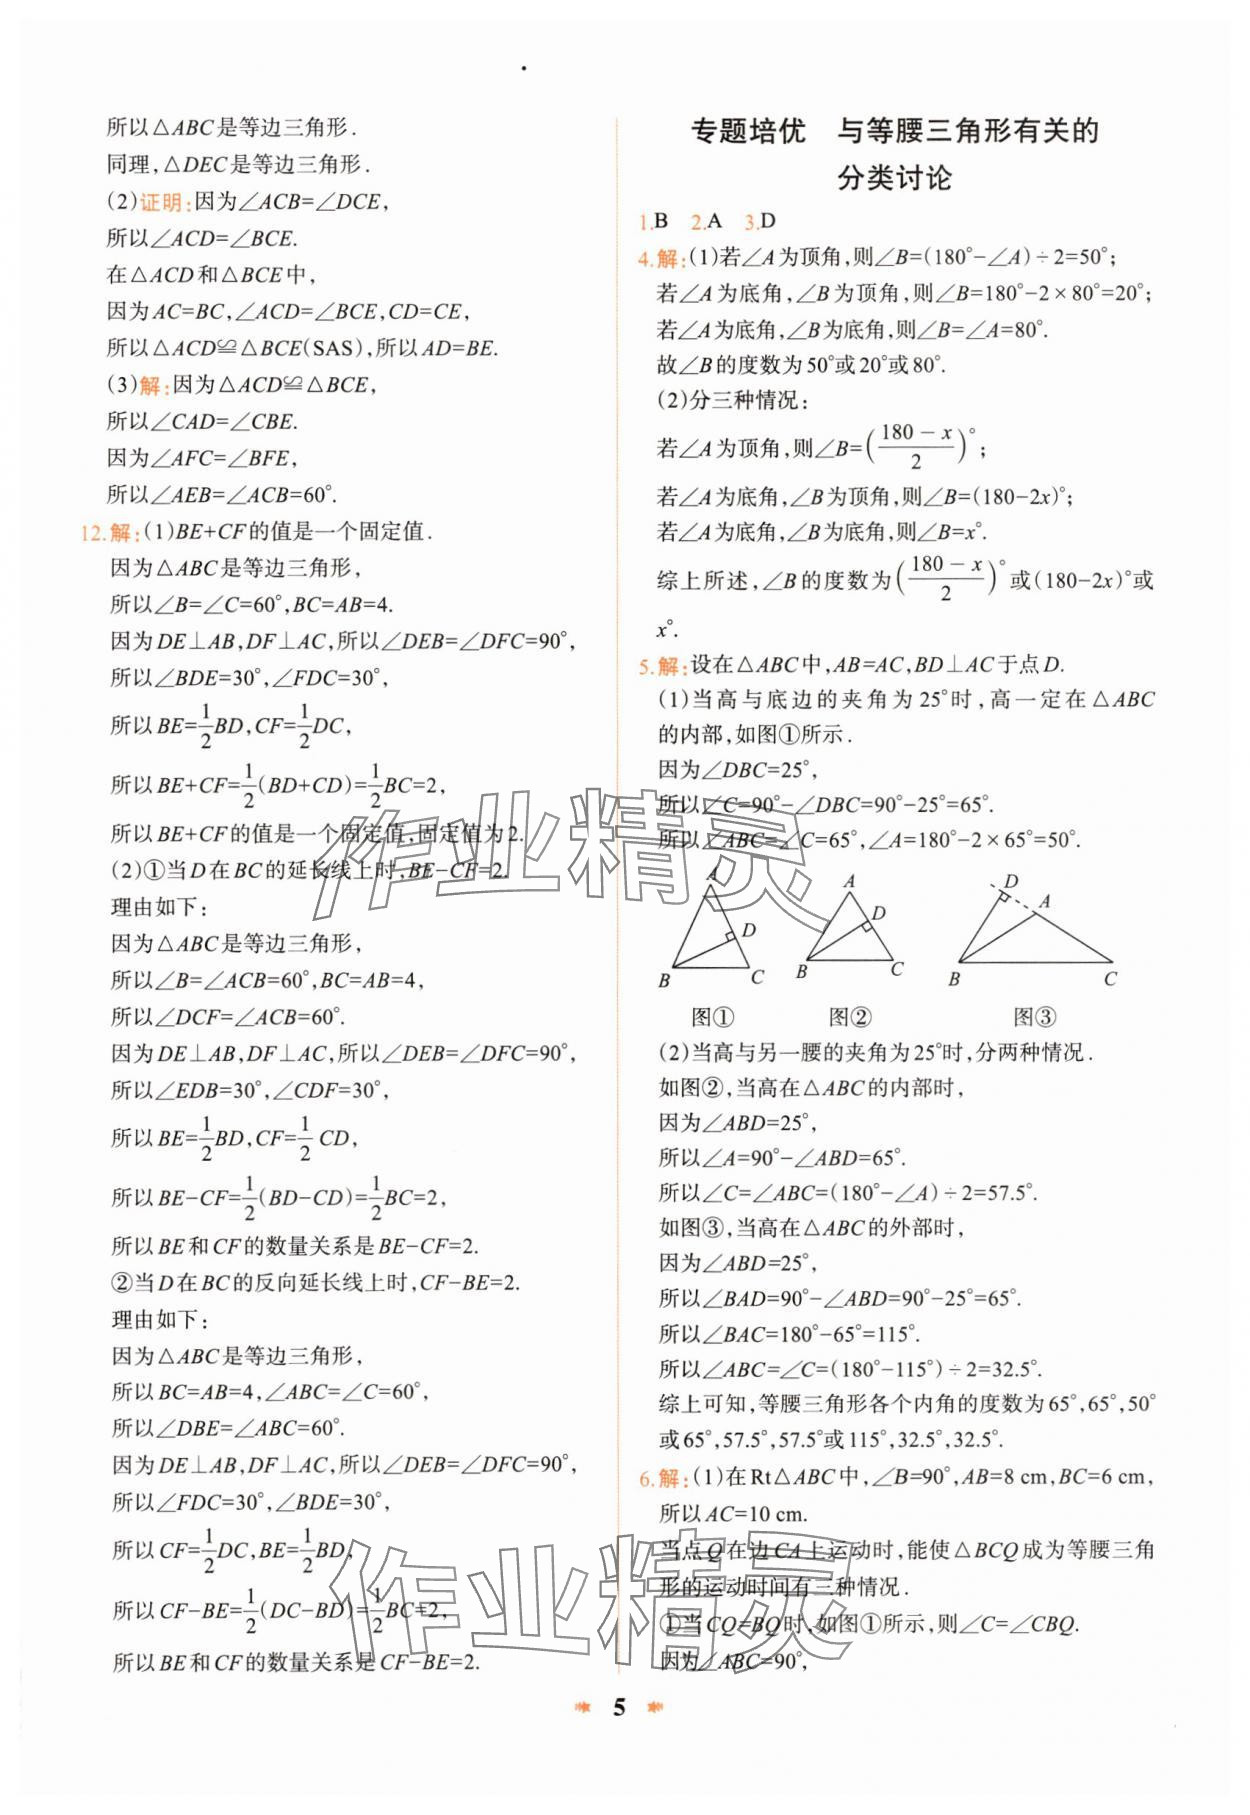 所以△ABC是等边三角形.
同理,△DEC是等边三角形.
(2)证明:因为∠ACB=∠DCE,
所以∠ACD=∠BCE.
在△ACD和△BCE中,
因为AC=BC,∠ACD=∠BCE,CD=CE,
所以△ACD≌△BCE(SAS),所以AD=BE.
(3)解:因为△ACD≌△BCE,
所以∠CAD=∠CBE.
因为∠AFC=∠BFE,
所以∠AEB=∠ACB=60°.
12.解:(1)BE+CF的值是一个固定值.
因为△ABC是等边三角形,
所以∠B=∠C=60°,BC=AB=4.
因为DE⊥AB,DF⊥AC,所以∠DEB=∠DFC=90°,
所以∠BDE=30°,∠FDC=30°,
所以BE=1/2BD,CF=1/2DC,
所以BE+CF=1/2(BD+CD)=1/2BC=2,
所以BE+CF的值是一个固定值,固定值为2.
(2)①当D在BC的延长线上时,BE-CF=2.
理由如下:
因为△ABC是等边三角形,
所以∠B=∠ACB=60°,BC=AB=4,
所以∠DCF=∠ACB=60°.
因为DE⊥AB,DF⊥AC,所以∠DEB=∠DFC=90°,
所以∠EDB=30°,∠CDF=30°,
所以BE=1/2BD,CF=1/2 CD,
所以BE-CF=1/2(BD-CD)=1/2BC=2,
所以BE和CF的数量关系是BE-CF=2.
②当D在BC的反向延长线上时,CF-BE=2.
理由如下:
因为△ABC是等边三角形,
所以BC=AB=4,∠ABC=∠C=60°,
所以∠DBE=∠ABC=60°.
因为DE⊥AB,DF⊥AC,所以∠DEB=∠DFC=90°,
所以∠FDC=30°,∠BDE=30°,
所以CF=1/2DC,BE=1/2BD,
所以CF-BE=1/2(DC-BD)=1/2BC=2,
所以BE和CF的数量关系是CF-BE=2.
专题培优 与等腰三角形有关的
分类讨论
1.B 2.A 3.D
4.解:(1)若∠A为顶角,则∠B=(180°-∠A)÷2=50°;
若∠A为底角,∠B为顶角,则∠B=180°-2×80°=20°;
若∠A为底角,∠B为底角,则∠B=∠A=80°.
故∠B的度数为50°或20°或80°.
(2)分三种情况:
若∠A为顶角,则∠B=((180-x)/2)°;
若∠A为底角,∠B为顶角,则∠B=(180-2x)°;
若∠A为底角,∠B为底角,则∠B=x°.
综上所述,∠B的度数为((180-x)/2)°或(180-2x)°或
x°.
5.解:设在△ABC中,AB=AC,BD⊥AC于点D.
(1)当高与底边的夹角为25°时,高一定在△ABC
的内部,如图①所示.
因为∠DBC=25°,
所以∠C=90°-∠DBC=90°-25°=65°.
所以∠ABC=∠C=65°,∠A=180°-2×65°=50°.
A D B C
A D B C
D A B C
图① 图② 图③
(2)当高与另一腰的夹角为25°时,分两种情况.
如图②,当高在△ABC的内部时,
因为∠ABD=25°,
所以∠A=90°-∠ABD=65°.
所以∠C=∠ABC=(180°-∠A)÷2=57.5°.
如图③,当高在△ABC的外部时,
因为∠ABD=25°,
所以∠BAD=90°-∠ABD=90°-25°=65°.
所以∠BAC=180°-65°=115°.
所以∠ABC=∠C=(180°-115°)÷2=32.5°.
综上可知,等腰三角形各个内角的度数为65°,65°,50°
或65°,57.5°,57.5°或115°,32.5°,32.5°.
6.解:(1)在Rt△ABC中,∠B=90°,AB=8 cm,BC=6 cm,
所以AC=10 cm.
当点Q在边CA上运动时,能使△BCQ成为等腰三角
形的运动时间有三种情况.
①当CQ=BQ时,如图①所示,则∠C=∠CBQ.
因为∠ABC=90°,
5
作业精灵
作业精灵